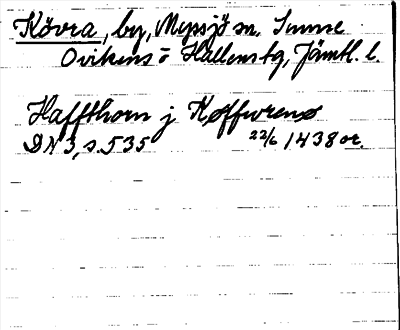 Kövra, by, Myssjö sn, Sunne
Ovikens o Hallens tg, Jämtl. l.
Haffthorn j Køffwrenø
DN 3, s. 535 22/6 1438 or.